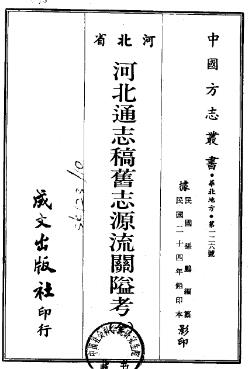 中國方志叢書·華北地方·第一二六號
據民國編纂
民國二十四年鉛印本影印
河北省
河北通志稿舊志源流關隘考
成文出版社印行